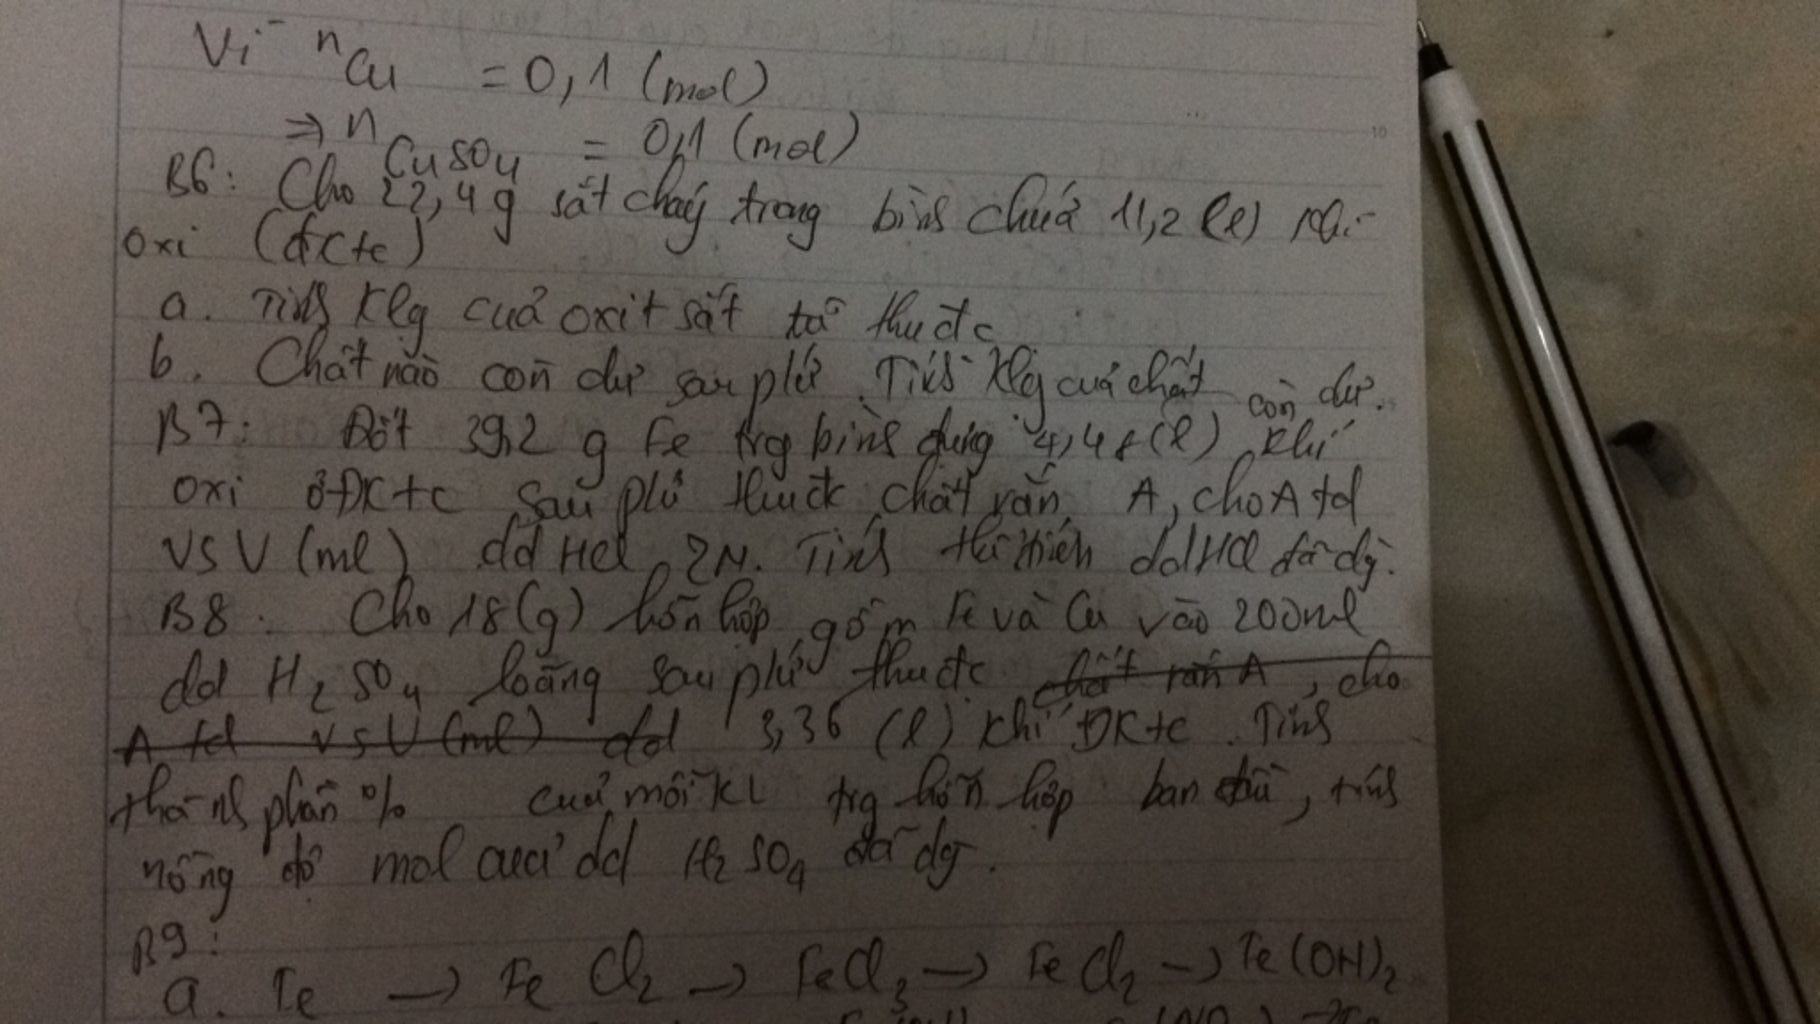 Vì nCu = 0,1 (mol)
⇒ nCuSO4 = 0,1 (mol)
B6: Cho 22,4 g sắt cháy trong bình chứa 11,2 (l)
oxi (đktc)
a. Tính klg của oxit sắt từ thu đc
b. Chất nào còn dư sau pứ. Tính klg của chất còn dư.
B7: Đốt 39,2 g Fe trg bình đựng 4,48 (l) khí
oxi ở ĐKtc sau pứ thu đc chất rắn A, cho A td
vs V (ml) dd HCl 2N. Tính dd HCl đã dg.
B8: Cho 18(g) hỗn hợp gồm Fe và Cu vào 200ml
dd H2SO4 loãng sau pứ thu đc chất rắn A, cho
A td vs V (ml) dd 3,36 (l) khí ĐKtc. Tính
thành phần % của mỗi KL trg hỗn hợp ban đầu, tính
nồng độ mol của dd H2SO4 đã dg.
B9:
a. Fe → FeCl2 → FeCl3 → FeCl2 → Fe(OH)2